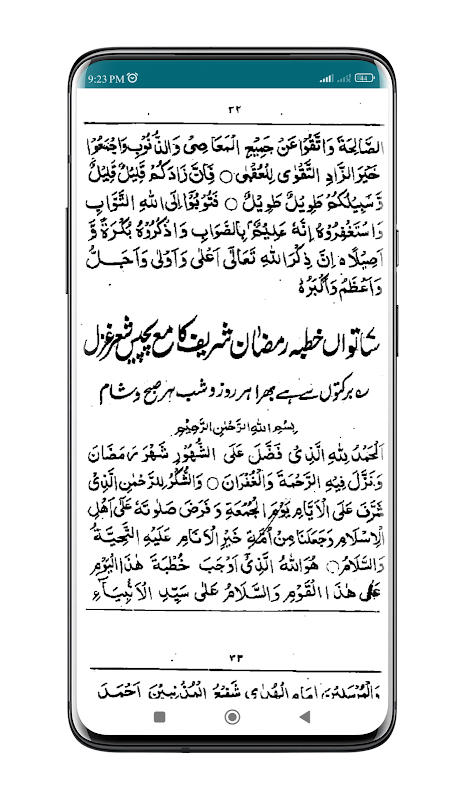 9:23 PM
٣٢
الصَّالِحَةَ وَاتَّقُوْا عَنْ جَمِيْعِ الْمَعَاصِيْ وَالذُّنُوْبِ وَاجْمَعُوْا
خَيْرَ الزَّادِ التَّقْوٰى لِلْعُقْبٰى ○ فَاِنَّ زَادَكُمْ قَلِيْلٌ قَلِيْلٌ
وَّسَبِيْلُكُمْ طَوِيْلٌ طَوِيْلٌ ○ فَتُوْبُوْا اِلَى اللهِ التَّوَّابِ
وَاسْتَغْفِرُوْهُ اِنَّهٗ عَلِيْمٌ بِالصَّوَابِ وَاذْكُرُوْهُ بُكْرَةً وَّ
اَصِيْلًا ہ اِنَّ ذِكْرَ اللهِ تَعَالٰى اَعْلٰى وَاَوْلٰى وَاَجَلُّ
وَاَعْظَمُ وَاَكْبَرُ ہ
ساتواں خطبہ رمضان شریف کا مع پچیس شعر غزل
برکتوں سے ہے بھرا ہر روز و شب ہر صبح و شام
بِسْمِ اللهِ الرَّحْمٰنِ الرَّحِيْمِ
اَلْحَمْدُ لِلّٰهِ الَّذِيْ فَضَّلَ عَلَى الشُّهُوْرِ شَهْرَ رَمَضَانَ
وَنَزَّلَ فِيْهِ الرَّحْمَةَ وَالْغُفْرَانَ ○ وَالشُّكْرُ لِلرَّحْمٰنِ الَّذِيْ
شَرَّفَ عَلَى الْاَيَّامِ يَوْمَ الْجُمُعَةِ وَفَرَضَ صَلٰوتَهٗ عَلٰى اَهْلِ
الْاِسْلَامِ وَجَعَلَنَا مِنْ اُمَّةِ خَيْرِ الْاَنَامِ عَلَيْهِ التَّحِيَّةُ
وَالسَّلَامُ ○ هُوَ اللهُ الَّذِيْ اَوْجَبَ خُطْبَةَ هٰذَا الْيَوْمِ
عَلٰى هٰذَا الْقَوْمِ وَالسَّلَامُ عَلٰى سَيِّدِ الْاَنْبِيَآءِ
٣٣
وَالْمُرْسَلِيْنَ اِمَامِ الْهُدٰى شَفِيْعِ الْمُذْنِبِيْنَ اَحْمَدَ